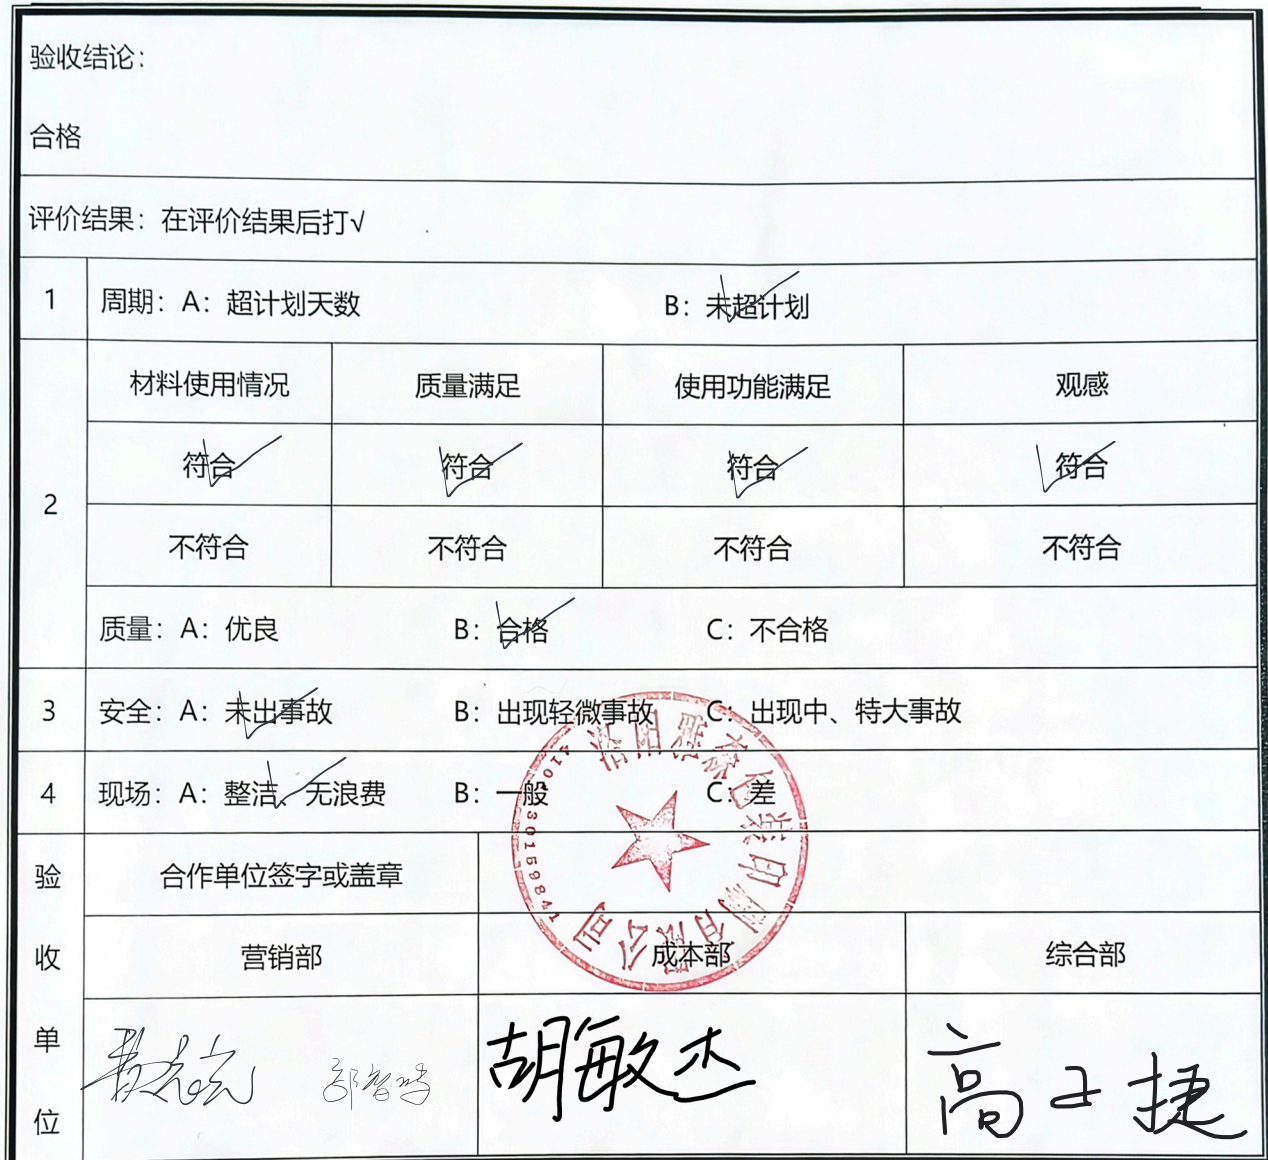 验收结论：
合格
评价结果：在评价结果后打√
1 周期：A：超计划天数 B：未超计划
材料使用情况 质量满足 使用功能满足 观感
符合 符合 符合 符合
2
不符合 不符合 不符合 不符合
质量：A：优良 B：合格 C：不合格
3 安全：A：未出事故 B：出现轻微事故 C：出现中、特大事故
4 现场：A：整洁、无浪费 B：一般 C：差
验收单位
合作单位签字或盖章
营销部 成本部 综合部
胡敏杰